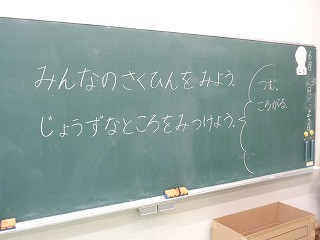 みんなのさくひんをみよう。
じょうずなところをみつけよう。
つむ。
ころがる。